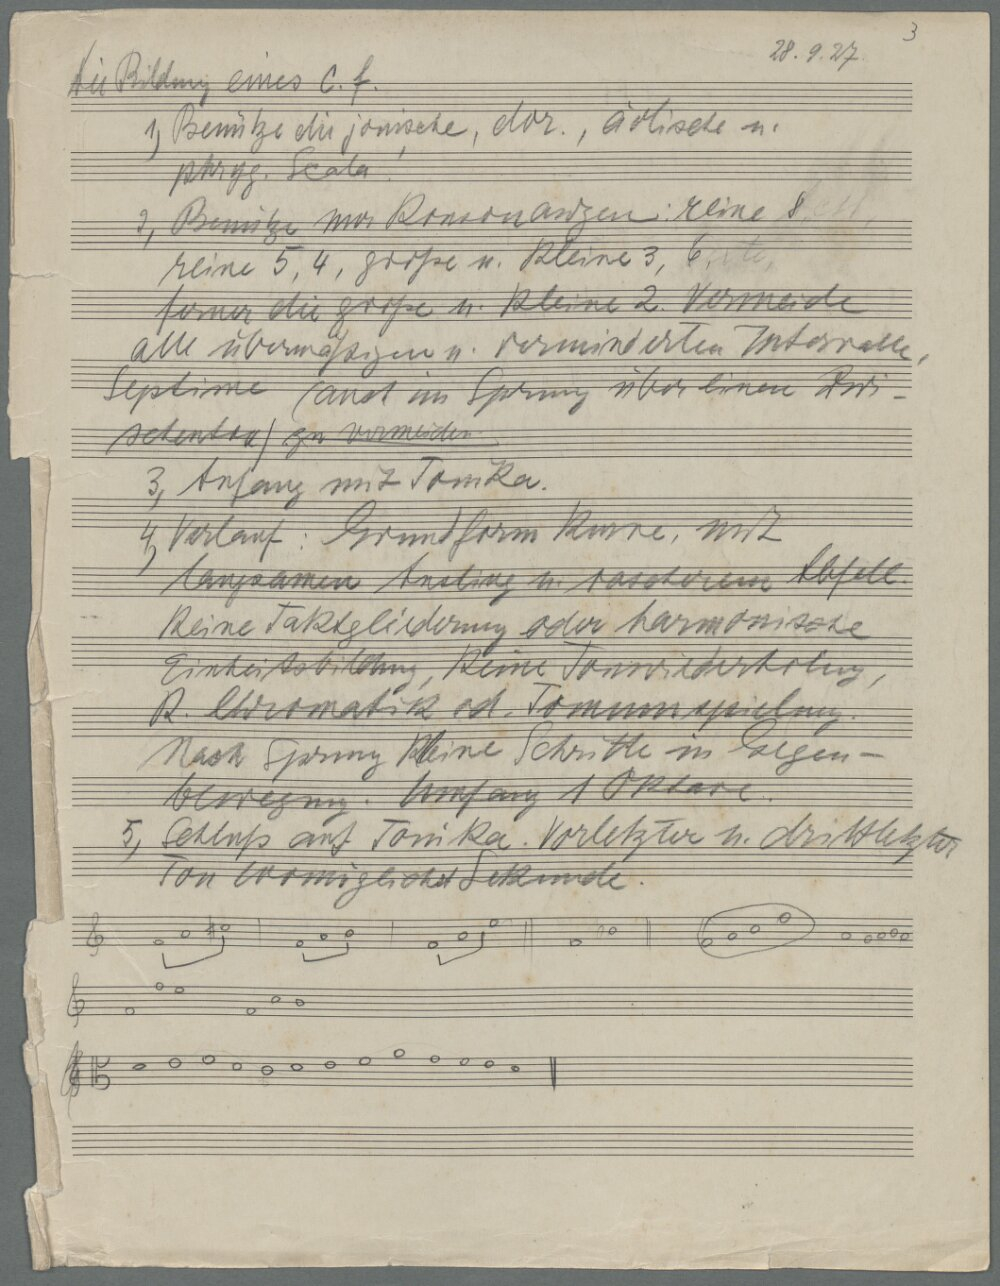 3
28.9.27.
Die Bildung eines C. f.
1, Benütze die jonische, dor., äolische u.
phryg. Scala!
2, Benütze nur Konsonanzen: reine 8,
reine 5, 4, große u. kleine 3, 6,
ferner die große u. kleine 2. Vermeide
alle übermäßigen u. verminderten Intervalle,
Septime (auch im Sprung über einen Zwi-
schenton) zu vermeiden
3, Anfang mit Tonika.
4, Verlauf: Grundform Kurve, mit
langsamen Anstieg u. rascherem Abfall.
Keine Taktgliederung oder harmonische
Einheitsbildung, keine Tonwiederholung,
K. Chromatik od. Tonumspielung.
Nach Sprung kleine Schritte in Gegen-
bewegung. Umfang 1 Oktave.
5, Schluß auf Tonika. Vorletzter u. drittletzter
Ton womöglichst Sekunde.